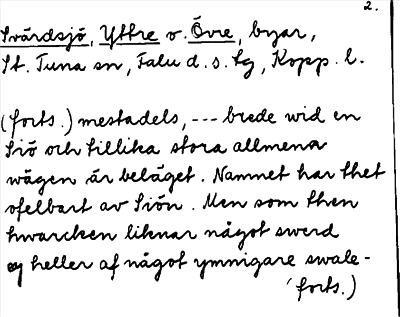 2.
Svärdsjö, Yttre o. Övre, byar,
St. Tuna sn, Falu d. s. lg, Kopp. l.
(forts.) mestadels, --- brede wid en
Siö och tillika stora allmenna
wägen är beläget. Namnet har thet
ofelbart av Siön. Men som then
hwarcken liknar något swerd
ej heller af något ymnigare swale-
(forts.)